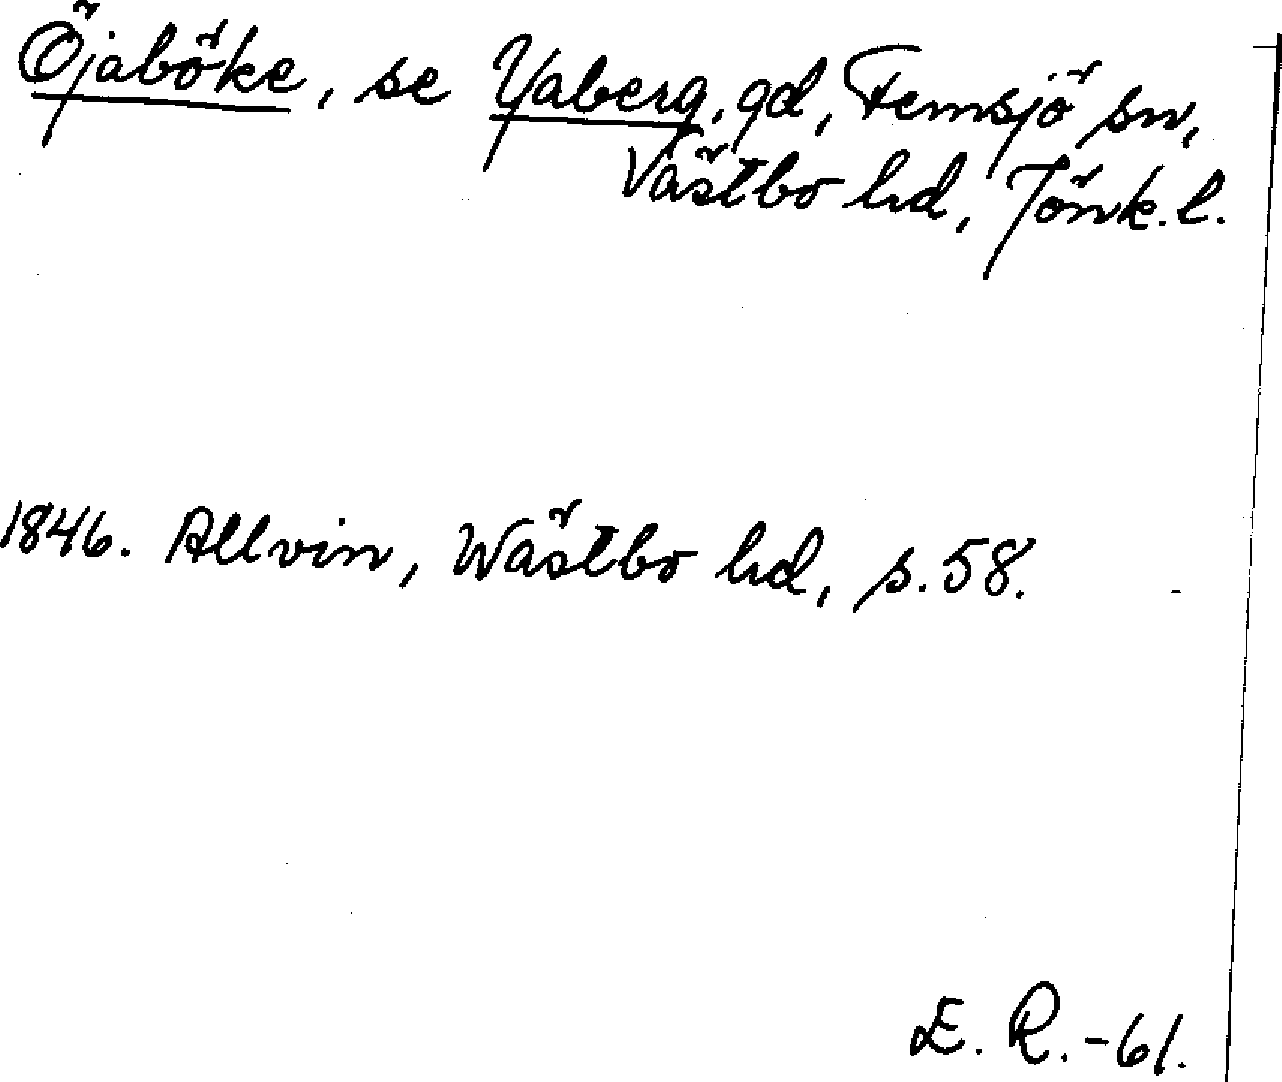 Öjaböke, se Yaberg, gd, Femsjö sn,
Västbo hd, Jönk. l.
1846. Allvin, Wästbo hd, s. 58.
E. R. -61.